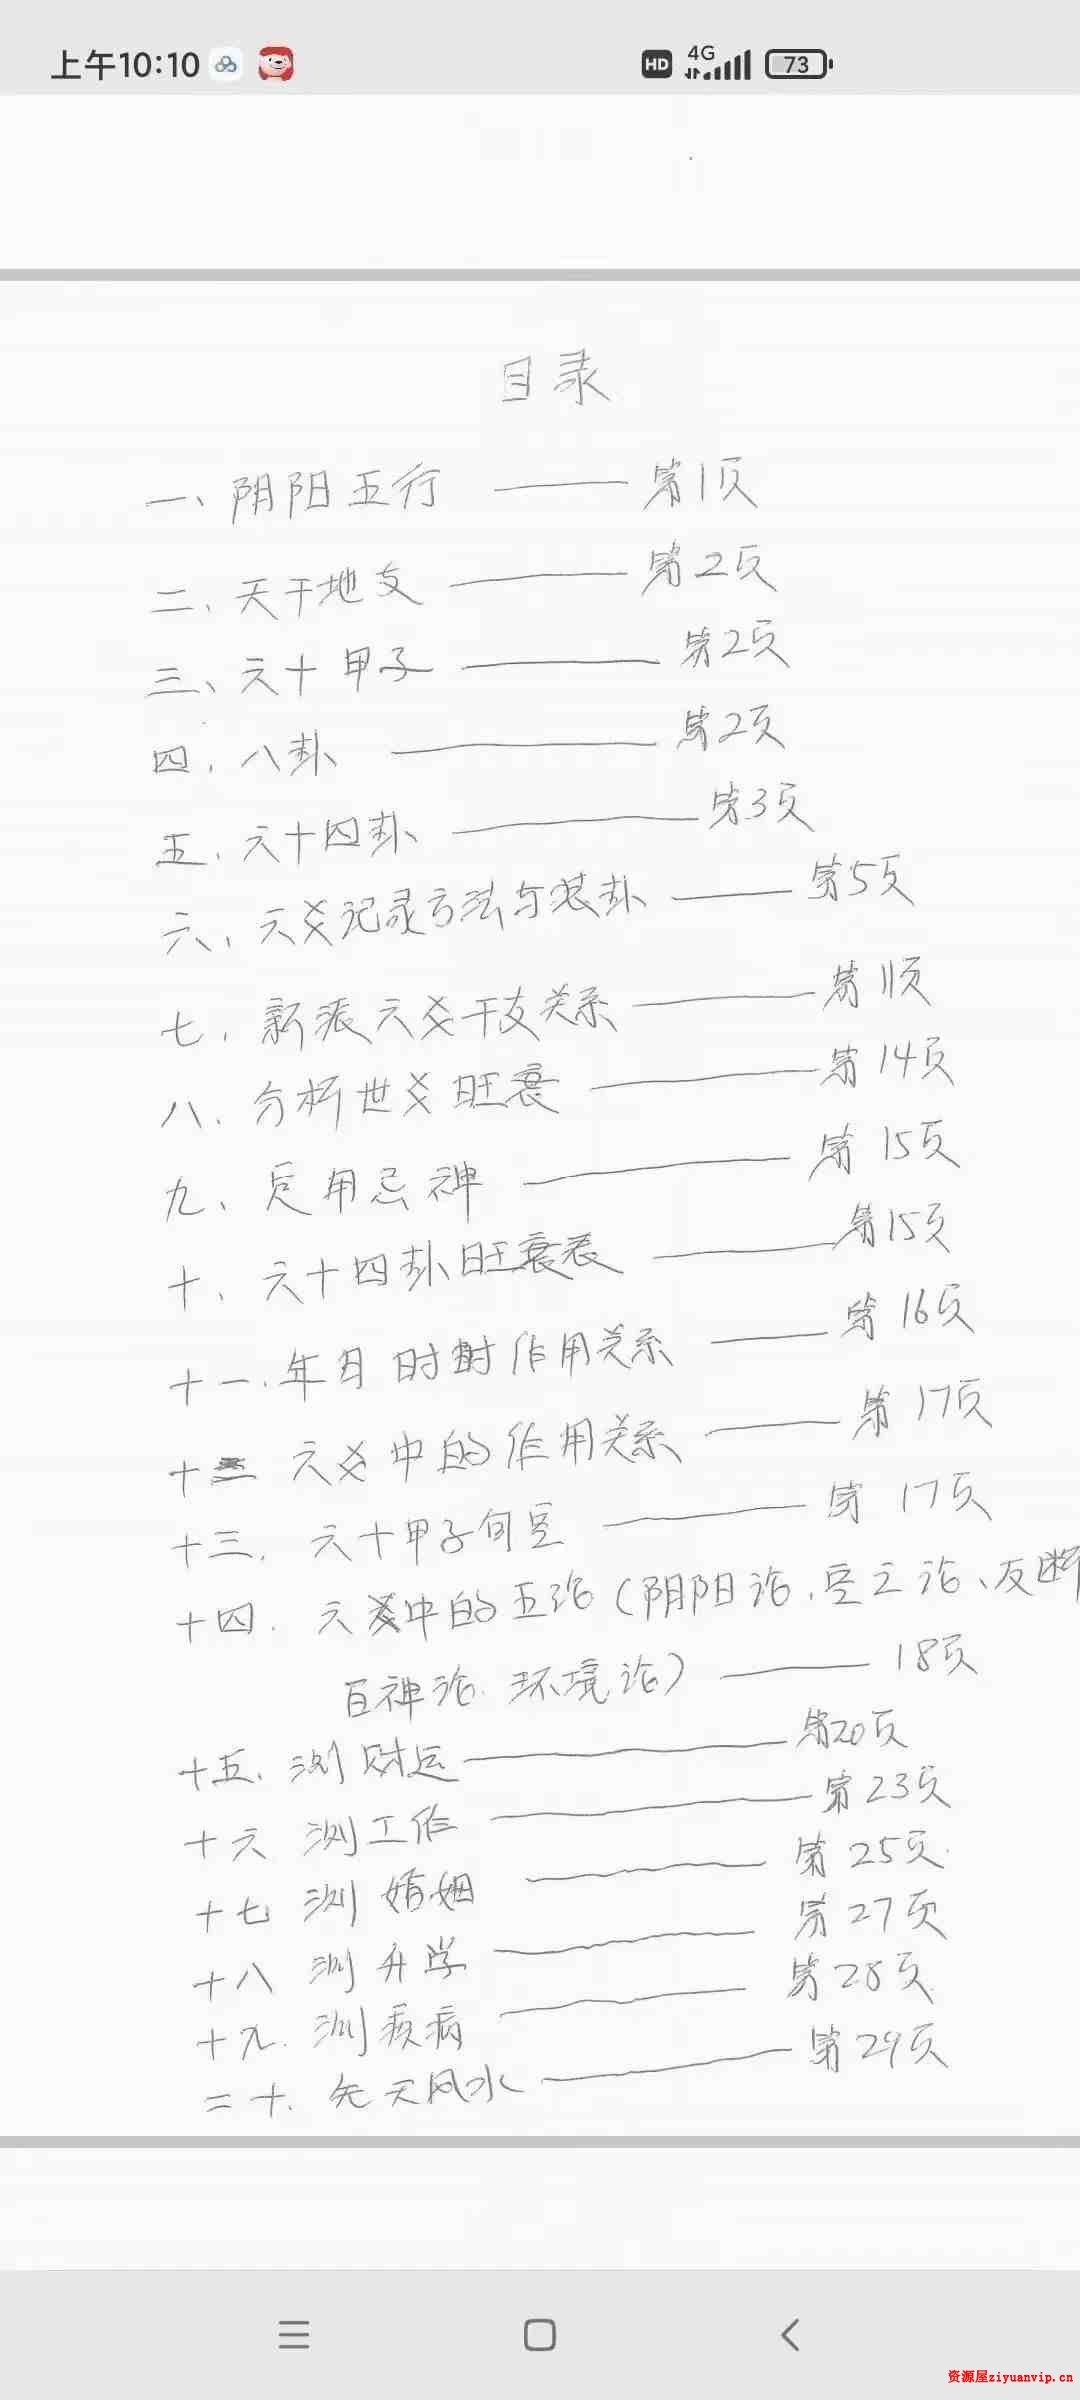 上午10:10
HD 4G 73
目录
一、阴阳五行 —— 第1页
二、天干地支 —— 第2页
三、六十甲子 —— 第2页
四、八卦 —— 第2页
五、六十四卦 —— 第3页
六、六爻记录方法与装卦 —— 第5页
七、新派六爻干支关系 —— 第11页
八、分析世爻旺衰 —— 第14页
九、定用忌神 —— 第15页
十、六十四卦旺衰表 —— 第15页
十一、年月时 作用关系 —— 第16页
十二 六爻中的作用关系 —— 第17页
十三、六十甲子旬空 —— 第17页
十四、六爻中的五论(阴阳论、空亡论、反断
百神论、环境论) —— 18页
十五、测财运 —— 第20页
十六 测工作 —— 第23页
十七 测婚姻 —— 第25页
十八 测升学 —— 第27页
十九、测疾病 —— 第28页
二十、先天风水 —— 第29页
资源屋ziyuanvip.cn